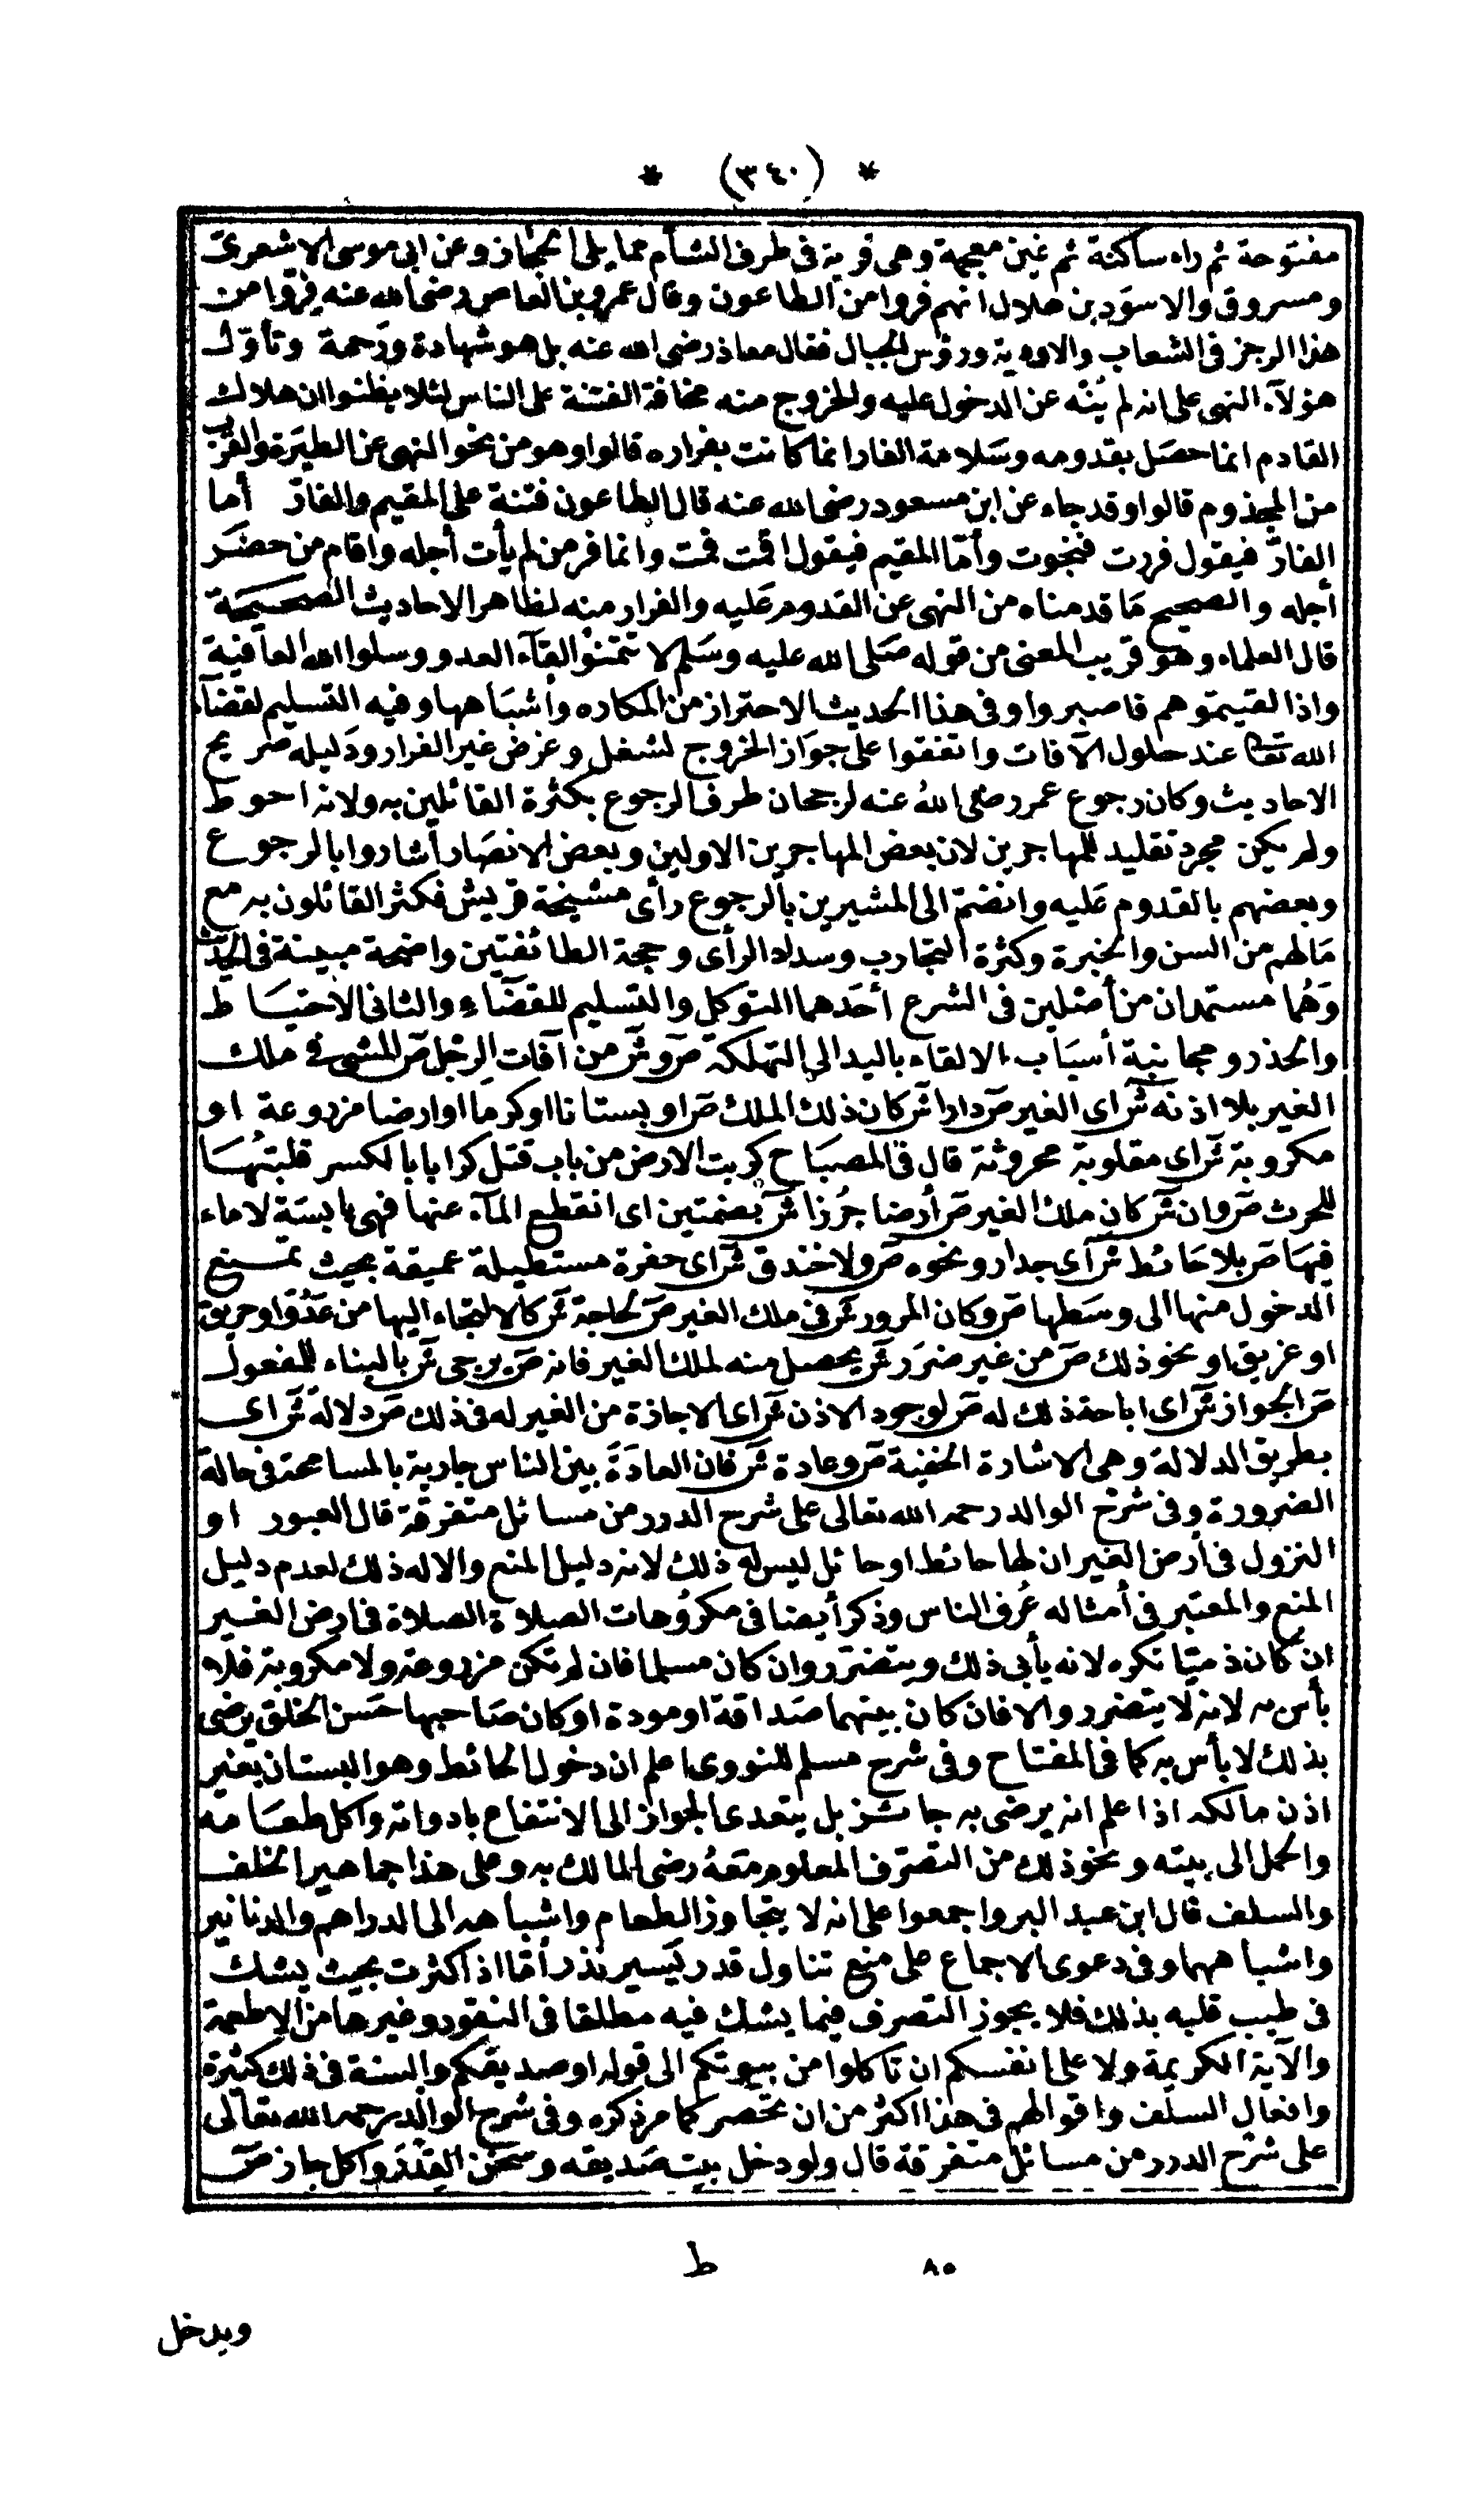 * (٣٤٠) *
مفتوحة ثم راء ساكنة ثم غين معجمة وهى قرية فى طرف الشأم مما يلى الحجاز وعن ابى موسى الاشعرى
ومسروق والاسود بن هلال انهم فروا من الطاعون وقال عمرو بن العاص رضى الله عنه فروا من
هذا الرجز فى الشعاب والاودية ورؤس الجبال فقال معاذ رضى الله عنه بل هو شهادة ورحمة وتأول
هؤلآء النهى على انه لم ينه عن الدخول عليه والخروج منه مخافة الفتنة على الناس لئلا يظنوا ان هلاك
القادم انما حصل بقدومه وسلامة الفار انما كانت بفراره قالوا وهو من نحو النهى عن الطيرة والقرب
من المجذوم قالوا وقد جاء عن ابن مسعود رضى الله عنه قال الطاعون فتنة على المقيم والفار أما
الفار فيقول فررت فنجوت وأما المقيم فيقول اقمت فمت وانما فر من لم يأت أجله واقام من حضر
أجله والصحيح ما قدمناه من النهى عن القدوم عليه والفرار منه لظاهر الاحاديث الصحيحة
قال العلماء وهو قريب المعنى من قوله صلى الله عليه وسلم لا تتمنوا لقآء العدو وسلوا الله العافية
واذا لقيتموهم فاصبروا وفى هذا الحديث الاحتراز من المكاره وأشباهها وفيه التسليم لقضآء
الله تعا عند حلول الآفات واتفقوا على جواز الخروج لشغل وغرض غير الفرار ودليله صريح
الاحاديث وكان رجوع عمر رضى الله عنه لرجحان طرف الرجوع بكثرة القائلين به ولانه احوط
ولم يكن مجرد تقليد للمهاجرين لان بعض المهاجرين الاولين وبعض الانصار أشاروا بالرجوع
وبعضهم بالقدوم عليه وانضم الى المشيرين بالرجوع رأى مشيخة قريش فكثر القائلون به مع
مالهم من السن والخبرة وكثرة التجارب وسداد الرأى وحجة الطائفتين واضحة مبينة فى الحديث
وهما مستمدان من أصلين فى الشرع أحدهما التوكل والتسليم للقضآء والثانى الاحتياط
والحذر ومجانبة أسباب الالقاء باليد الى التهلكة ص و ش من آفات الرجل ص المشى فى ملك
الغير بلا اذنه ش اى الغير ص دارا ش كان ذلك الملك ص او بستانا او كرما او ارضا مزروعة او
مكروبة ش اى مقلوبة محروثة قال فى المصباح كربت الارض من باب قتل كرابا بالكسر قلبتها
للحرث ص وان ش كان ملك الغير ص أرضا جرزا ش بضمتين اى انقطع المآء عنها فهى يابسة لا ماء
فيها ص بلا حائط ش اى جدار ونحوه ص ولا خندق ش اى حفرة مستطيلة عميقة بحيث تمنع
الدخول منها الى وسطها ص وكان المرور ش فى ملك الغير ص لحاجة ش كالالتجاء اليها من عدو او حريق
او غريق او نحو ذلك ص من غير ضرر ش يحصل منه لملك الغير فانه ص يرجى ش بالبناء للمفعول
ص الجواز ش اى اباحة ذلك له ص لوجود الاذن ش اى الاجازة من الغير له فى ذلك ص دلالة ش اى
بطريق الدلالة وهى الاشارة الخفية ص وعادة ش فان العادة بين الناس جارية بالمسامحة فى حالة
الضرورة وفى شرح الوالد رحمه الله تعالى على شرح الدرر من مسائل متفرقة قال العبور او
النزول فى أرض الغير ان لها حائط او حائل ليس له ذلك لانه دليل المنع والا له ذلك لعدم دليل
المنع والمعتبر فى أمثاله عرف الناس وذكر أيضا فى مكروهات الصلاة الصلاة فى ارض الغير
ان كان ذميا تكره لانه يأبى ذلك ويتضرر وان كان مسلما فان لم تكن مزروعة ولا مكروبة فلا
بأس به لانه لا يتضرر والا فان كان بينهما صداقة او مودة او كان صاحبها حسن الخلق يرضى
بذلك لا بأس به كما فى المفتاح وفى شرح مسلم للنووى اعلم ان دخول الحائط وهو البستان بغير
اذن مالكه اذا علم انه يرضى به جائز بل يتعدى الجواز الى الانتفاع بادواته واكل طعامه
والحمل الى بيته ونحو ذلك من التصرف المعلوم معه رضى المالك به وعلى هذا جماهير الخلف
والسلف قال ابن عبد البر واجمعوا على انه لا يتجاوز الطعام واشباهه الى الدراهم والدنانير
واشباههما وفى دعوى الاجماع على منع تناول قدر يسير نذر أما اذا كثرت بحيث يشك
فى طيب قلبه بذلك فلا يجوز التصرف فيما يشك فيه مطلقا فى النقود وغيرها من الاطعمة
والآية الكريمة ولا على انفسكم ان تاكلوا من بيوتكم الى قوله او صديقكم والسنة فى ذلك كثيرة
وافعال السلف واقوالهم فى هذا اكثر من ان تحصر كما مر ذكره وفى شرح الوالد رحمه الله تعالى
على شرح الدرر من مسائل متفرقة قال ولو دخل بيت صديقه وسخن القدر واكل جاز ص
٨٥ ط
ويدخل